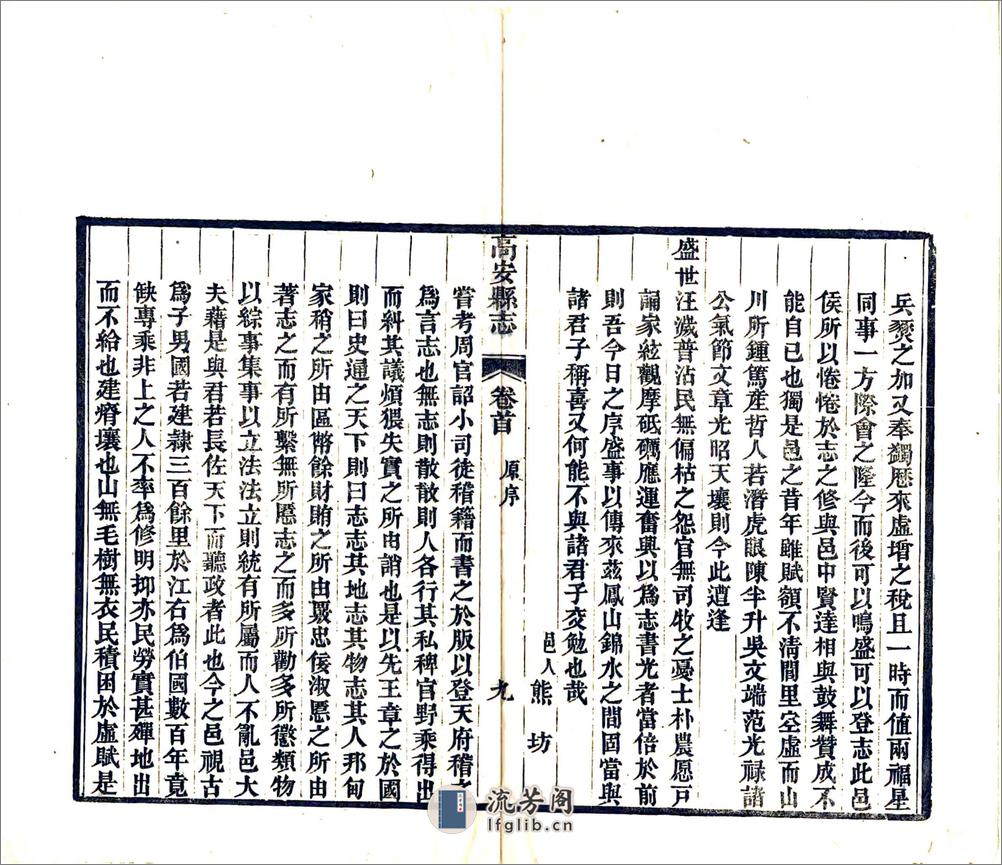 兵燹之加又奉蠲歷來虛增之稅且一時而值兩福星
同事一方際會之隆今而後可以鳴盛可以登志此邑
侯所以惓惓於志之修與邑中賢達相與鼓舞贊成不
能自已也獨是邑之昔年雖賦額不清閭里空虛而山
川所鍾篤產哲人若潛虎眼陳半升吳文端范光祿諸
公氣節文章光昭天壤則今此遭逢
盛世汪濊普沾民無偏枯之怨官無司牧之憂士朴農愿戸
誦家絃觀摩砥礪應運奮興以為志書光者當倍於前
則吾今日之序盛事以傳來茲鳳山錦水之間固當與
諸君子稱喜又何能不與諸君子交勉也哉
邑人熊坊
高安縣志 卷首 原序 九
嘗考周官詔小司徒稽籍而書之於版以登天府稽之
為言志也無志則散散則人各行其私稗官野乘得出
而糾其議煩猥失實之所由誚也是以先王章之於國
則曰史通之天下則曰志志其地志其物志其人邦甸
家稍之所由區幣餘財賄之所由斂忠佞淑慝之所由
著志之而有所繫無所慝志之而多所勸多所懲類物
以綜事集事以立法法立則統有所屬而人不亂邑大
夫藉是與君若長佐天下而聽政者此也今之邑視古
為子男國若建隸三百餘里於江右為伯國數百年竟
缺專乘非上之人不率為修明抑亦民勞實甚殫地出
而不給也建瘠壤也山無毛樹無衣民積困於虛賦是
流芳閣
lfglib.cn